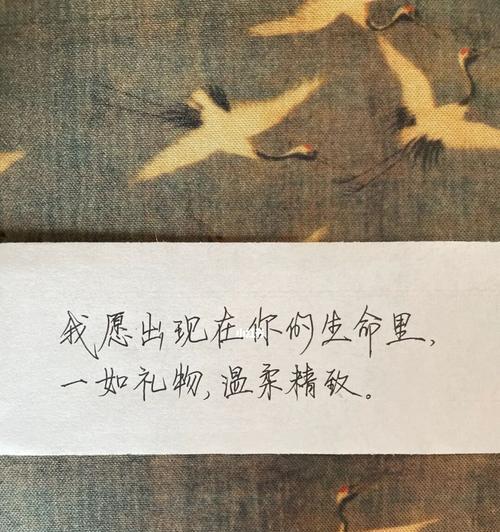 我愿出现在你的生命里，
一如礼物，温柔精致。